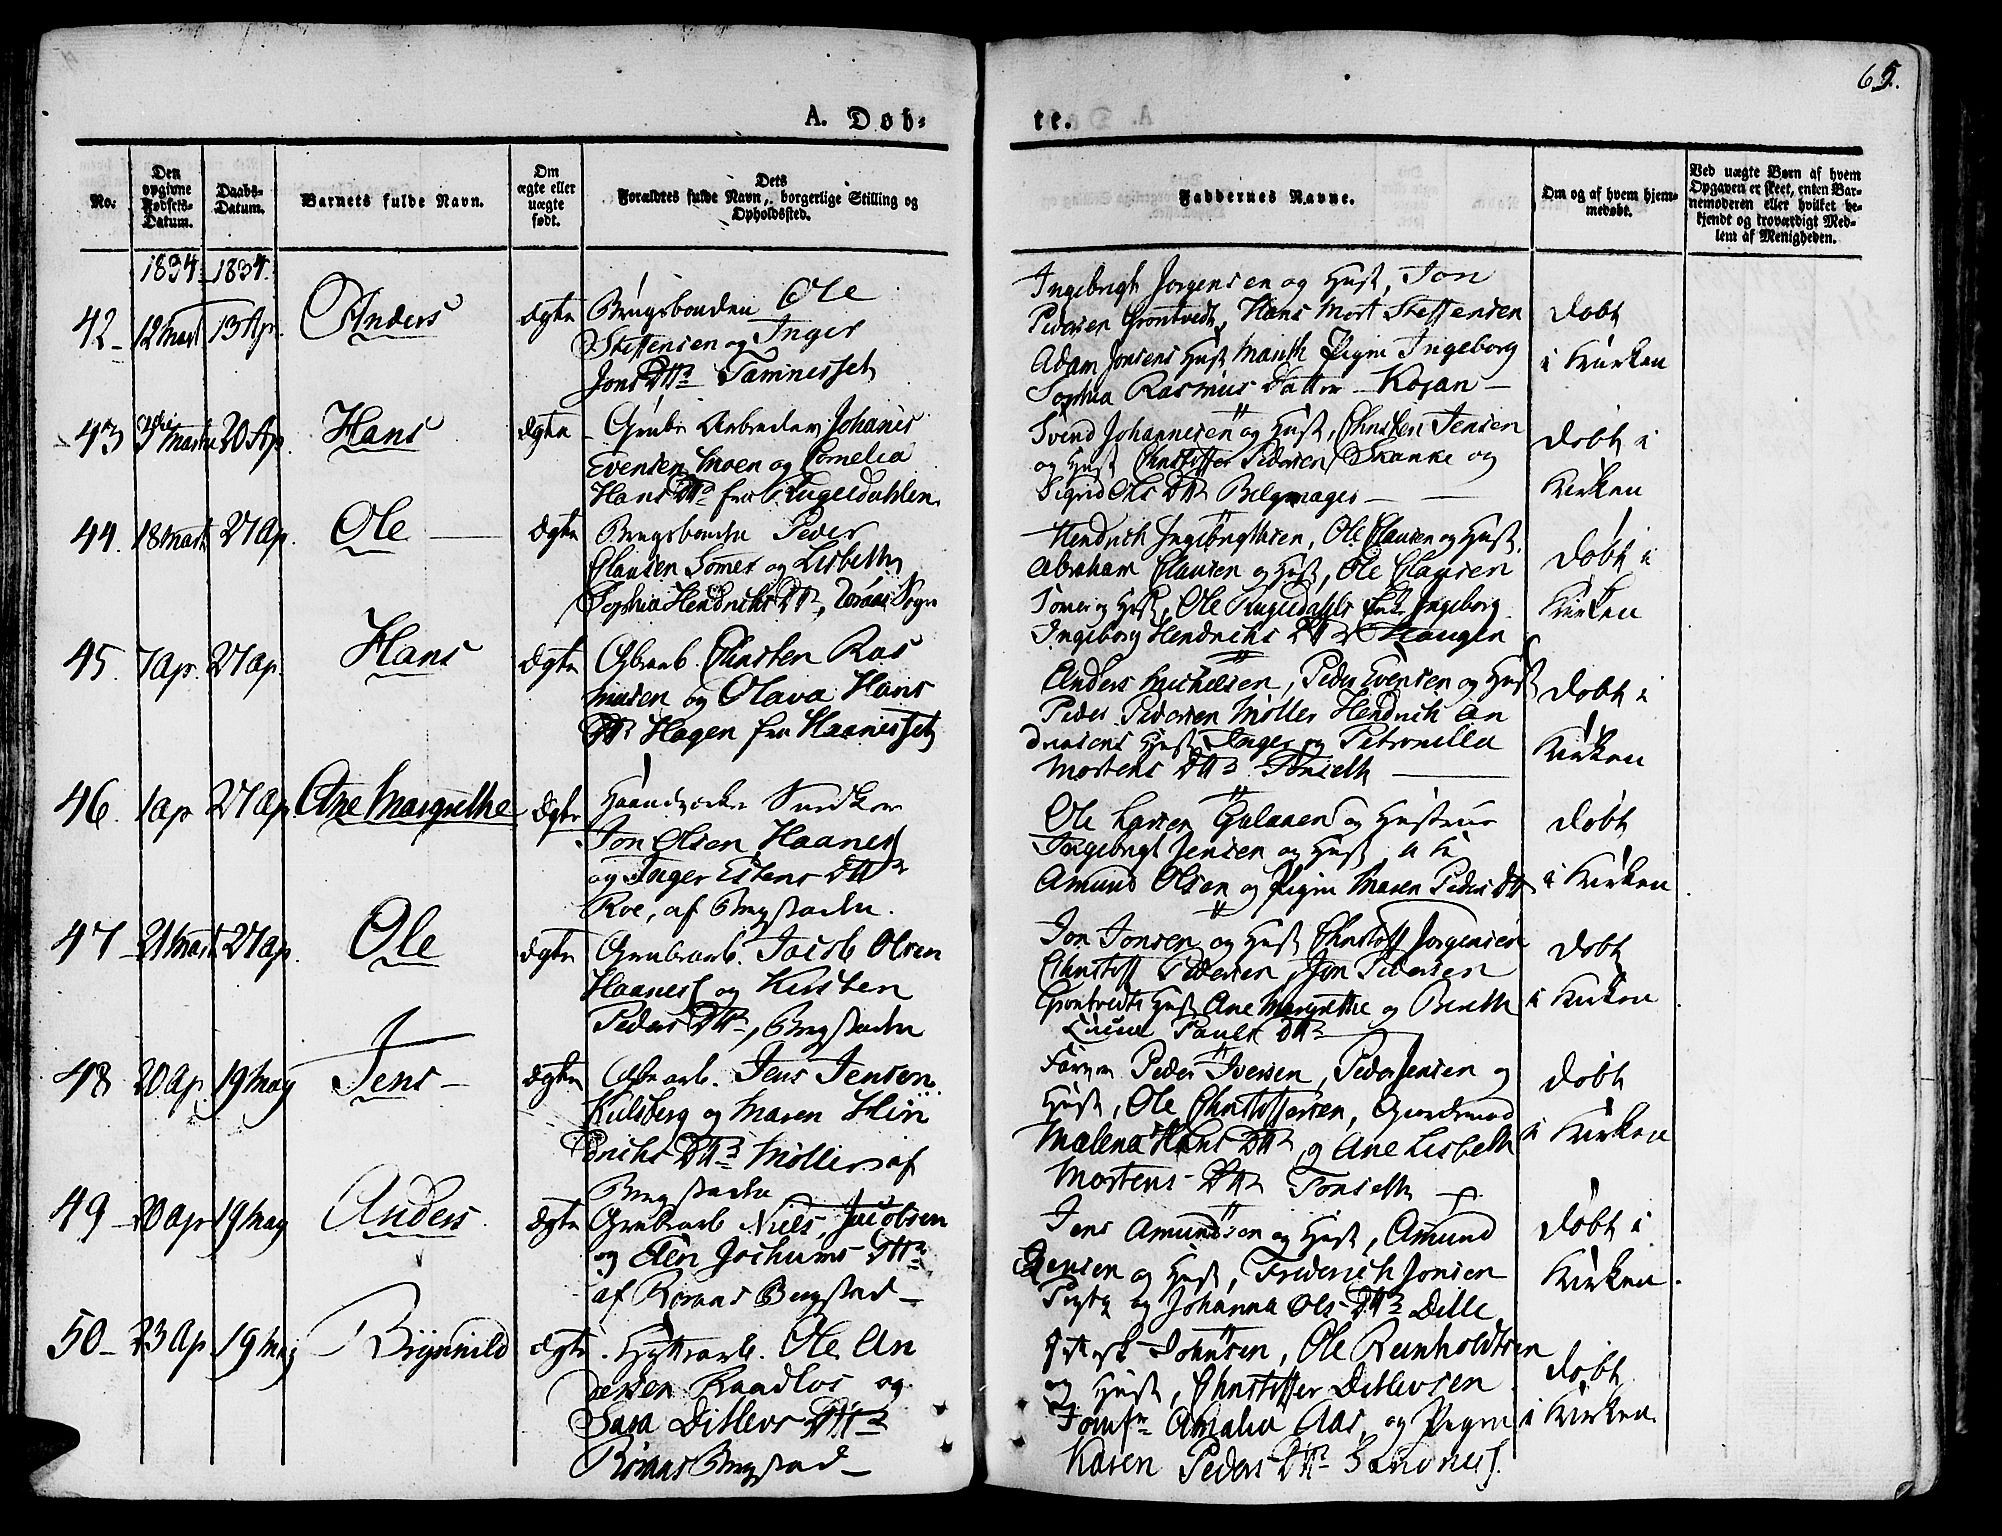 65.
A. Døb-
te.
No.
Den
opgivne
Fødsels-
Datum.
Daabs-
Datum.
Barnets fulde Navn.
Om
ægte eller
uægte
født.
Dets
Forældres fulde Navn, borgerlige Stilling og
Opholdssted.
Faddernes Navne.
Om og af hvem hjem-
medøbt.
Ved uægte Børn af hvem
Opgaven er skeet, enten Bar-
nemoderen eller hvilket be-
kjendt og troværdigt Med-
lem af Menigheden.
1834. 1834.
42 12 Mart 13 Ap. Anders ægte Brugsbonden Ole
Steffensen og Inger
Jons Dtt. Tamnesset
Ingebrigt Jorgensen og Hust, Jon
Pedersen Grontvedt, Hans Mort Steffensen
Adam Jonsens Hust Marith Pigen Ingeborg
Sophia Rasmus Datter Kojan
Døbt
i Kirken
43 20 Ap. Hans ægte Grube Arbeider Johanis
Evensen Moen og Cornelia
Hans Dtr fra Kugeldahlen
Svend Johannesen og Hust, Christen Jensen
og Hust Christoffer Pedersen Skanke og
Sigrid Ols Dtr
Døbt i
Kirken
44. 18 Mart 27 Ap. Ole ægte Brugsbonden Peder
Clausen Sømes og Lisbeth
Sophia Hendrichs Dtr, Sogn
Hendrich Ingebrigthsen, Ole Clausen og Hust,
Abraham Clausen og Hust, Ole Clausen
Sømes og Hust, Ole Kugeldahls Enke Ingeborg
Ingeborg Hendrichs Dtr Haugen
Døbt i
Kirken
45. 7 Ap. 27 Ap. Hans ægte Grbarb. Christen Ras
musen og Olava Hans
Dtr Hagen fra Haanesset
Anders Michelsen, Peder Evensen og Hust
Peder Pedersen Møller Hendrich An
dersens Hust Inger og Petronella
Mortens Dtr Tønseth
Døbt i
Kirken
46. 1 Ap 27 Ap. Ane Margrethe ægte Haandværker Snedker
Jon Olsen Haanes
og Inger Estens Dtr
Roe, af Bergstaden.
Ole Larsen og Hustrue
Ingebrigt Jensen og Hust
Amund Olsen og Pigen Maren Peders Dtr
Døbt
i Kirken
47 21 Mart 27 Ap. Ole ægte Grubearb. Jacob Olsen
Haanes og Kirsten
Peders Dtr, Bergstaden
Jon Jonsen og Hust Christoff Jorgensen
Christoff Pedersen, Jon Pedersen
Grontvedts Hust Ane Margrethe og Bereth
Pauls Dtr
Døbt
i Kirken
48 20 Ap. 19 May Jens ægte Grbarb. Jens Jensen
Kulsberg og Maren Hin
drichs Dtr Møller af
Bergstaden
Peder Iversen, Peder Jensen og
Hust, Ole Christoffersen,
Malena Hans Dtr og Ane Lisbeth
Mortens Dtr Tønseth
Døbt
i Kirken
49 20 Ap 19 May Anders ægte Grubearb Niels Jacobsen
og Elen Jochums Dtr
af Røraas Bergstad
Jens Amundsen og Hust, Amund
Jensen og Hust, Frederich Jonsen
og Johanna Ols Dtr Dille
Døbt i
Kirken.
50 23 Ap 19 May Brynnild ægte Hytterarb. Ole An
dersen Raadlos og
Sara Ditlevs Dtr
Røraas Bergstad
Johnsen, Ole Reinholdtsen
og Hust, Christoffer Ditlevsen
Jomfr Amalia Aas, og Pigen
Karen Peders Dtr Sandnes.
Døbt
i Kirken